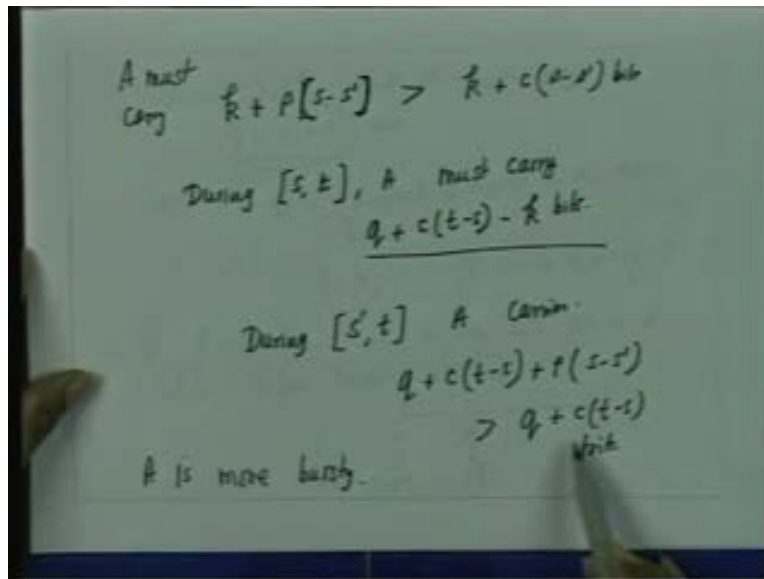 A must
carry k + ρ[s-s'] > k + c(s-s') bits
During [s, t], A must carry
q + c(t-s) - k bits
During [s', t] A carries
q + c(t-s) + ρ(s-s')
> q + c(t-s)
A is more bursty.